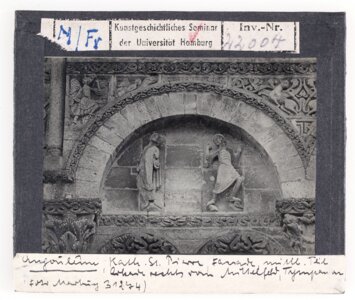 M/Fr
Kunstgeschichtliches Seminar
der Universität Hamburg
Inv.-Nr.
42004
Angoulême, Kath. St. Pierre Fassade mittl. Teil
rechts vom Mittelfeld Tympanon
Foto Marburg 31274)